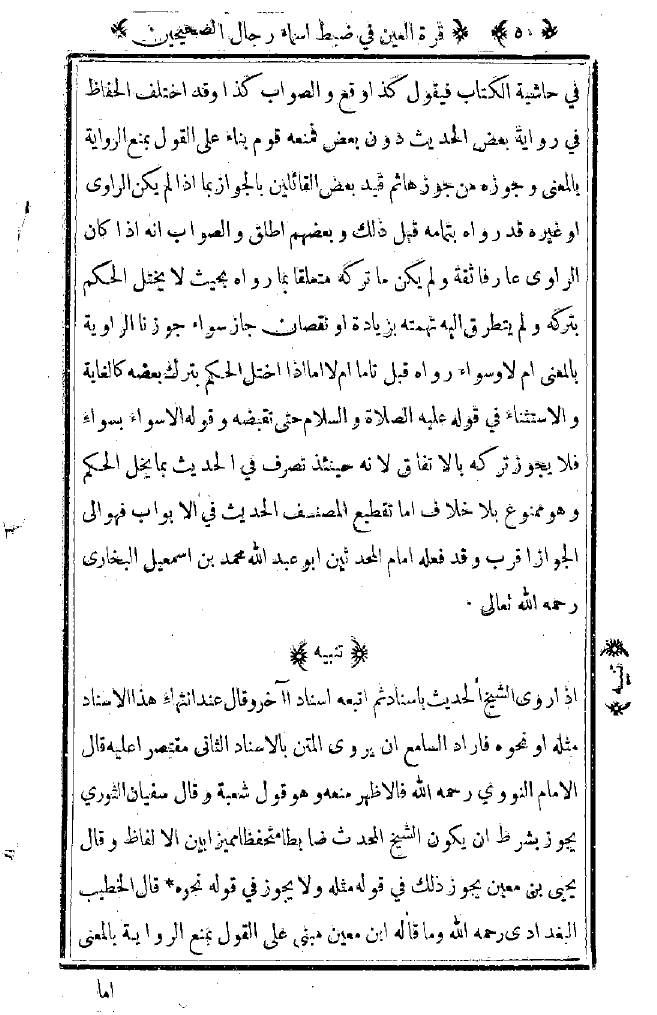 ﴿٥٠﴾ ﴿قرة العين في ضبط اسماء رجال الصحيحين﴾
في حاشية الكتاب فيقول كذا وقع والصواب كذا وقد اختلف الحفاظ
في رواية بعض الحديث دون بعض فمنعه قوم بناء على القول بمنع الرواية
بالمعنى وجوزه من جوزها ثم قيد بعض القائلين بالجواز بما اذا لم يكن الراوى
او غيره قد رواه بتمامه قبل ذلك وبعضهم اطلق والصواب انه اذا كان
الراوى عارفا ثقة ولم يكن ما تركه متعلقا بما رواه بحيث لا يختل الحكم
بتركه ولم يتطرق اليه تهمته بزيادة او نقصان جاز سواء جوزنا الراوية
بالمعنى ام لا وسواء رواه قبل تاما ام لا اما اذا اختل الحكم بترك بعضه كالغاية
والاستثناء في قوله عليه الصلاة والسلام حتى تقبضه وقوله الا سواء بسواء
فلا يجوز تركه بالاتفاق لانه حينئذ تصرف في الحديث بما يخل الحكم
وهو ممنوع بلا خلاف اما تقطيع المصنف الحديث في الابواب فهو الى
الجواز اقرب وقد فعله امام المحدثين ابو عبد الله محمد بن اسمعيل البخارى
رحمه الله تعالى ٠
﴿تنبيه﴾
﴿تنبيه﴾
اذا روى الشيخ الحديث باسناد ثم اتبعه اسنادا آخر وقال عند انتهاء هذا الاسناد
مثله او نحوه فاراد السامع ان يروى المتن بالاسناد الثانى مقتصرا عليه قال
الامام النووي رحمه الله فالاظهر منعه وهو قول شعبة وقال سفيان الثوري
يجوز بشرط ان يكون الشيخ المحدث ضابطا متحفظا مميزا بين الالفاظ وقال
يحيى بن معين يجوز ذلك في قوله مثله ولا يجوز في قوله نحوه* قال الخطيب
البغدادى رحمه الله وما قاله ابن معين مبنى على القول بمنع الرواية بالمعنى
اما